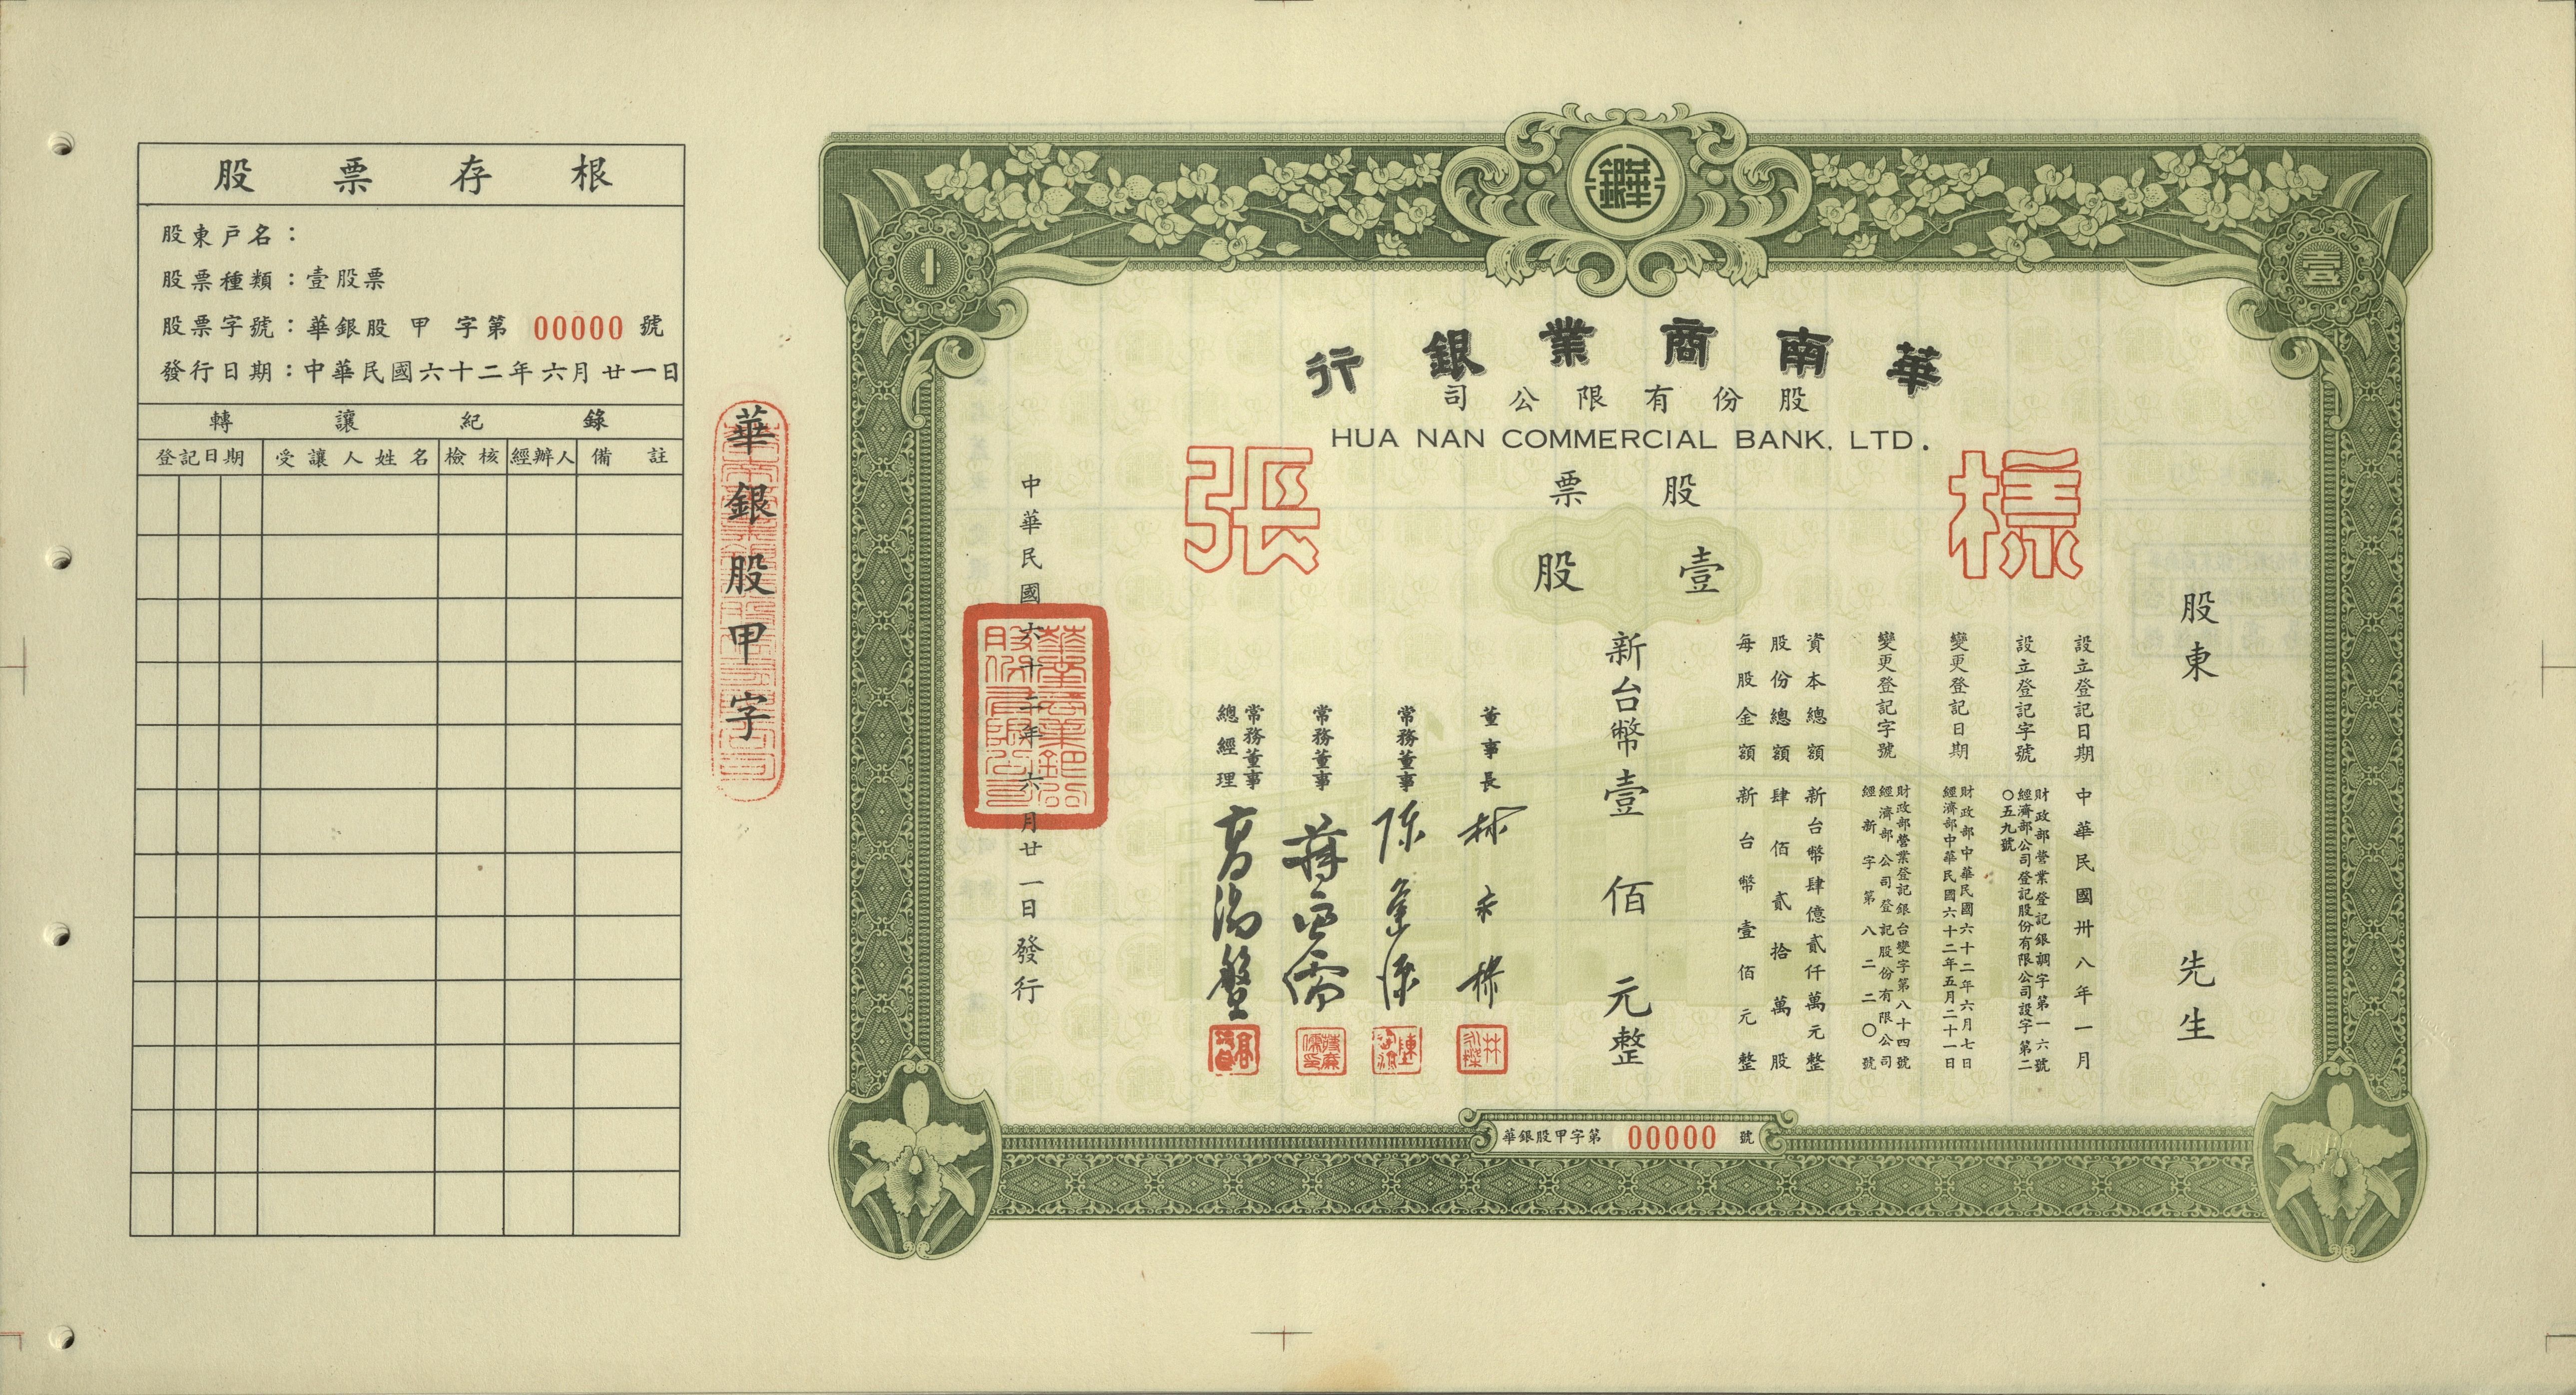 股票存根
股東戶名：
股票種類：壹股票
股票字號：華銀股 甲 字第 00000 號
發行日期：中華民國六十二年六月廿一日
轉讓紀錄
登記日期 受讓人姓名 檢核 經辦人 備註
華銀股甲字
壹
華南商業銀行
股份有限公司
HUA NAN COMMERCIAL BANK, LTD.
股票
壹股
樣張
股東 先生
設立登記日期 中華民國卅八年一月
設立登記字號 財政部營業登記銀調字第一六號
經濟部公司登記股份有限公司設字第二〇五九號
變更登記日期 財政部中華民國六十二年六月七日
經濟部中華民國六十二年五月二十一日
變更登記字號 財政部營業登記銀台變字第八十四號
經濟部公司登記股份有限公司
經新字第八二二〇號
資本總額 新台幣肆億貳仟萬元整
股份總額 肆佰貳拾萬股
每股金額 新台幣壹佰元整
新台幣壹佰元整
董事長
常務董事
常務董事
常務董事
總經理
中華民國六十二年六月廿一日發行
華銀股甲字第 00000 號